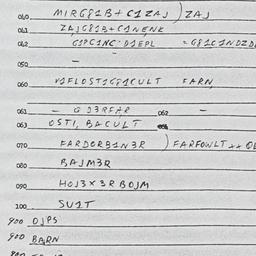 040 MIRG81B+C1ZAJ) ZAJ
041 ZAJG81B+C1NENK
042 G1PC1NC D1EPL = G81C1NDZD
050 —
060 V1FLOST1G81CULT FARN
061 — G D3RFAR 062 —
063 OSTI, BACULT
070 FARDORB1N3R ) FARFOWLT **
080 BAJM3R
090 HOJ3X3RBOJM
100 SU1T
900 OJPS
900 BARN